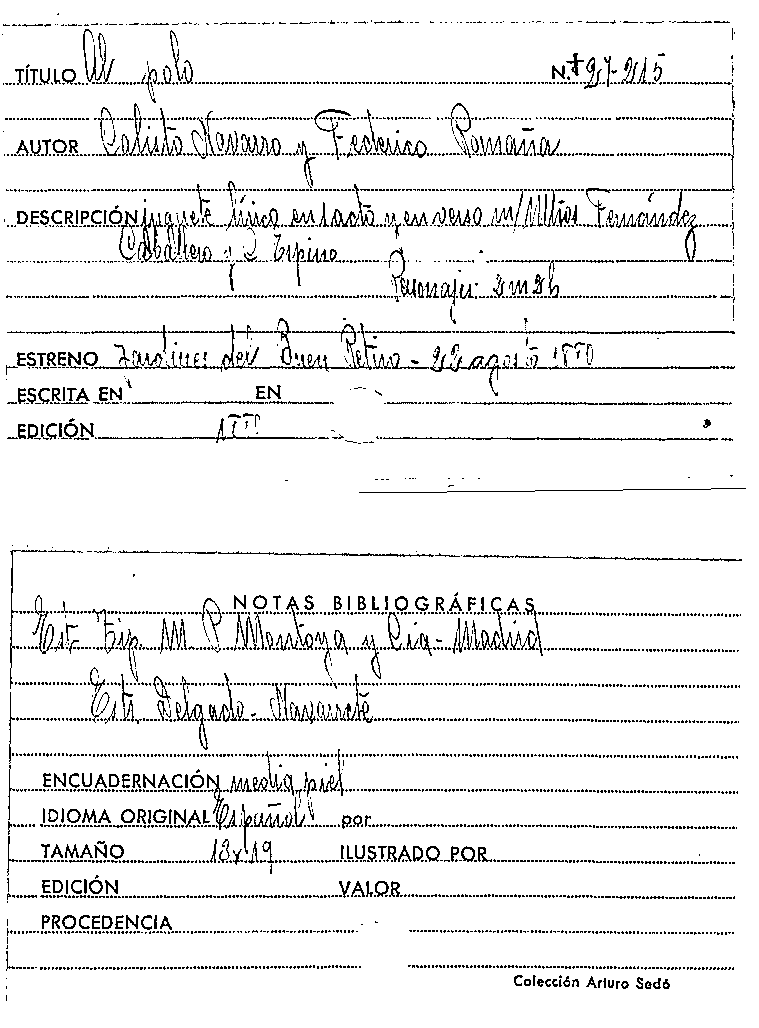 TÍTULO Al polo N.º 27-215
AUTOR Calisto Navarro y Federico Romaña
DESCRIPCIÓN juguete lírico en 1 acto y en verso m/ Mtros Fernández
Caballero y Espino
Personajes: 2m 2h
ESTRENO Jardines del Buen Retiro - 22 agosto 1880
ESCRITA EN EN
EDICIÓN 1880
NOTAS BIBLIOGRÁFICAS
Est. Tip. M. P Montoya y Cia - Madrid
Edts. Delgado - Navarrete
ENCUADERNACIÓN media piel
IDIOMA ORIGINAL Español por
TAMAÑO 13x19 ILUSTRADO POR
EDICIÓN VALOR
PROCEDENCIA
Colección Arturo Sedó